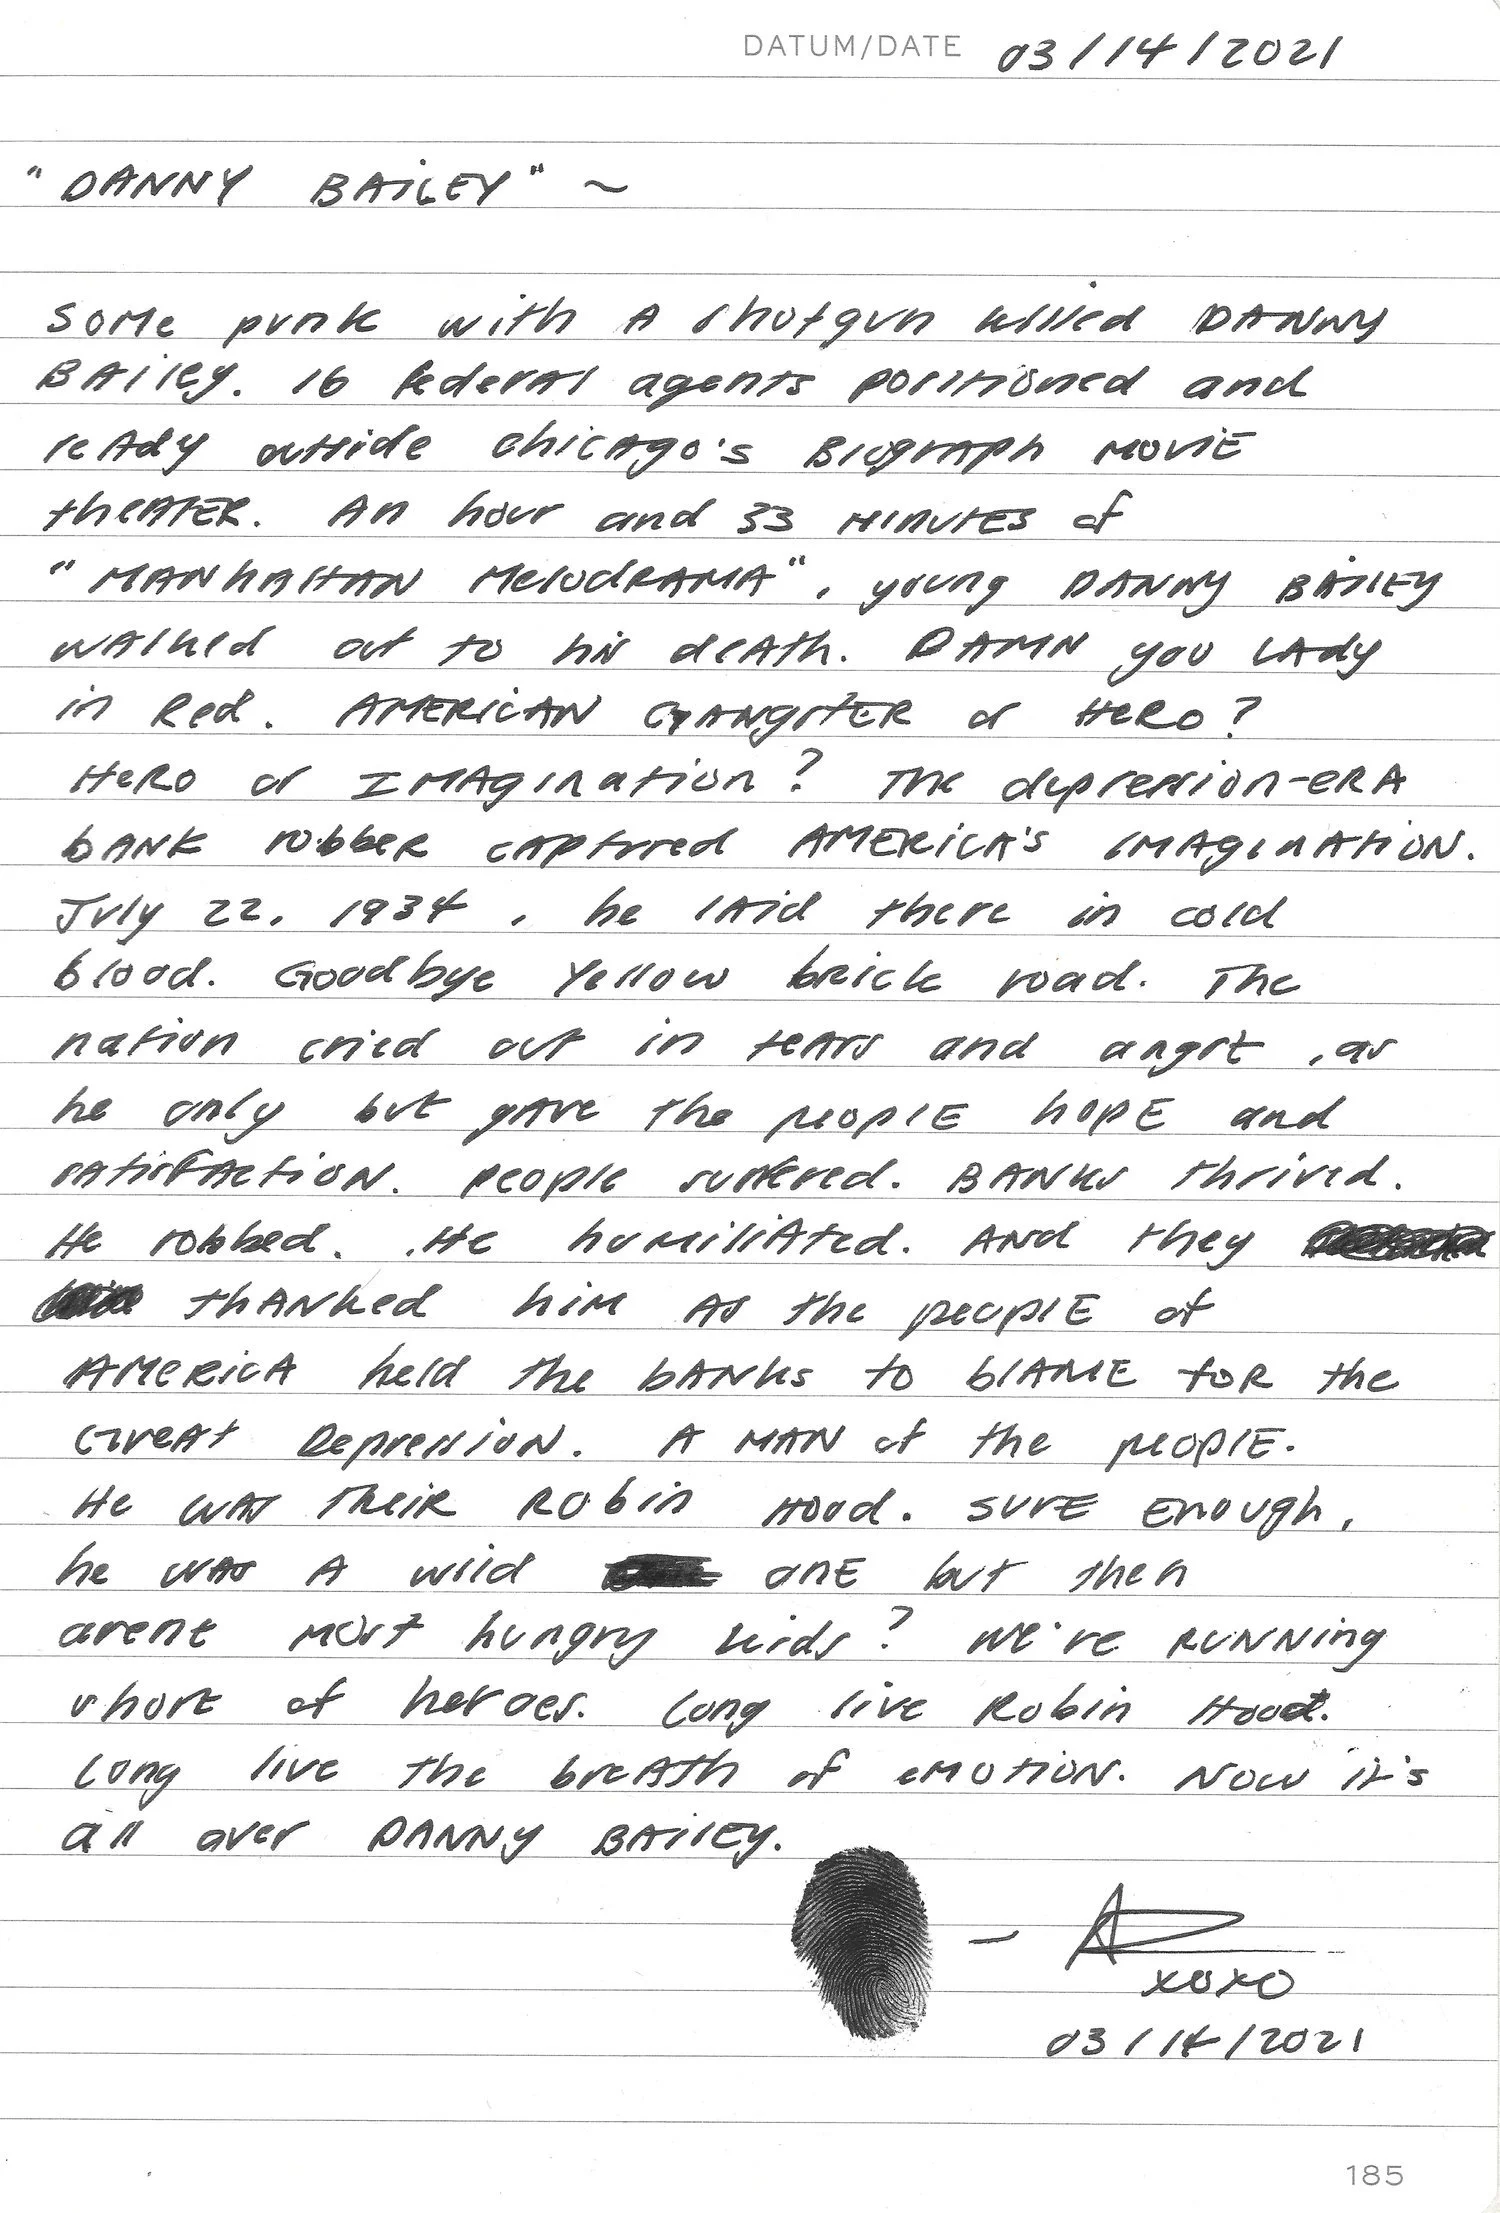 DATUM/DATE 03/14/2021
"DANNY BAILEY" ~
Some punk with A shotgun killed DANNY
BAiley. 16 federal agents positioned and
ready outside Chicago's Biograph MOViE
theATER. An hour and 33 MINUTES of
"MANhAttAN MelodRAMA", young DANNY BAILEY
walked out to his death. DAMN you LAdy
in Red. AMERICAN GANgsTER or HeRO?
HeRO or IMAgination? The depression-eRA
bANK robbeR captured AMERICA'S iMAgiNATiON.
July 22, 1934, he laid there in cold
blood. Goodbye Yellow brick road. The
nation cried out in teARs and angst, as
he only but gave the peoplE hopE and
satisfActiON. people suffered. BANKs thrived.
He robbed. He humiliAted. ANd they
thANked him As the peoplE of
AMERicA held the bANKs to blAME foR the
Great DepressiON. A MAN of the peoplE.
He was TheiR Robin Hood. SurE Enough,
he was A wild onE but then
arent most hungry kids? We're RUNNing
short of heroes. Long live Robin Hood.
Long live the breAth of eMOtiON. Now it's
all over DANNY BAiley.
xoxo
03/14/2021
185